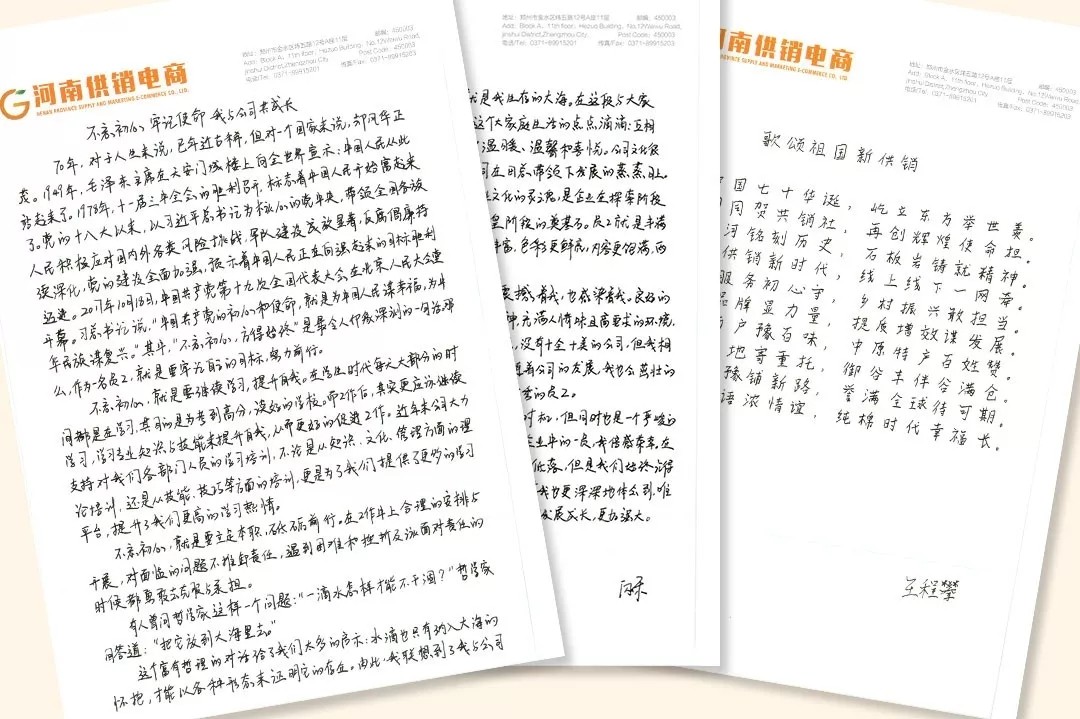 河南供销电商
HENAN PROVINCE SUPPLY AND MARKETING E-COMMERCE CO., LTD.
地址：郑州市金水区纬五路12号A座11层
邮编：450003
Add: Block A, 11th floor, Hezuo Building, No.12Weiwu Road,
jinshui District,Zhengzhou City.
Post Code：450003
电话/Tel：0371-89915201
传真/Fax：0371-89915201
不忘初心 牢记使命 我与公司共成长
70年，对于人生来说，已年近古稀，但对一个国家来说，却风华正
茂。1949年，毛泽东主席在天安门城楼上向全世界宣示：中国人民从此
站起来了。1978年，十一届三中全会的胜利召开，标志着中国人民开始富起来
了。党的十八大以来，以习近平总书记为核心的党中央，带领全国各族
人民积极应对国内外各类风险挑战，军队建设成效显著，反腐倡廉持
续深化，党的建设全面加强，预示着中国人民正在向强起来的目标胜利
迈进。2017年10月18日，中国共产党第十九次全国代表大会在北京人民大会堂
开幕。习总书记说，“中国共产党的初心和使命，就是为中国人民谋幸福，为中
华民族谋复兴。”其中，“不忘初心，方得始终”是最令人印象深刻的一句话。那
么，作为一名员工，就是要牢记自己的目标，努力前行。
不忘初心，就是要继续学习，提升自我。在学生时代每天大部分的时
间都是在学习，其目的是为考到高分，读好的学校。而工作后，其实更应该继续
学习，学习专业知识与技能来提升自我，从而更好的促进工作。近年来公司大力
支持对我们各部门人员的学习培训，不论是从知识、文化、管理方面的理
论培训，还是从技能、技巧等方面的培训，更是为了我们提供了更多的学习
平台，提升了我们更高的学习热情。
不忘初心，就是要立足本职，砥砺前行。在工作中上合理的安排与
开展，对面临的问题不推卸责任，遇到困难和挫折及该面对责任的
时候都勇敢去克服与承担。
有人曾问哲学家这样一个问题：“一滴水怎样才能不干涸？”哲学家
回答道：“把它放到大海里去。”
这个富有哲理的对话给了我们太多的启示：水滴也只有纳入大海的
怀抱，才能以各种形态来证明它的存在。由此，我联想到了我与公司
地址：郑州市金水区纬五路12号A座11层
邮编：450003
Add: Block A, 11th floor, Hezuo Building, No.12Weiwu Road,
jinshui District,Zhengzhou City.
Post Code：450003
电话/Tel：0371-89915201
传真/Fax：0371-89915201
就是我生存的大海。在这段与大家
这个大家庭生活的点点滴滴：互相
温暖、温馨和喜悦。公司文化很
司在田总带领下发展的蒸蒸日上。
文化的灵魂，是企业在探索阶段
阶段的奠基石。员工就是丰满
丰富，色彩更鲜亮，内容更饱满，而
撼着我，也感染着我。良好的
充满人情味且高要求的环境，
没有十全十美的公司，但我相
着公司的发展，我也会茁壮的
的员工。
时机，但同时也是一个严峻的
企业中的一员，我倍感荣幸，在
低落，但是我们始终记得
我也更深深地体会到，唯
发展成长，更加强大。
河南供销电商
HENAN PROVINCE SUPPLY AND MARKETING E-COMMERCE CO., LTD.
地址：郑州市金水区纬五路12号A座11层
邮编：450003
Add: Block A, 11th floor, Hezuo Building, No.12Weiwu Road,
jinshui District,Zhengzhou City.
Post Code：450003
电话/Tel：0371-89915201
传真/Fax：0371-89915201
歌颂祖国新供销
国七十华诞，屹立东方举世羡。
同贺共销社，再创辉煌使命担。
河铭刻历史，石板岩铸就精神。
供销新时代，线上线下一网牵。
服务初心守，乡村振兴敢担当。
品牌显力量，提质增效谋发展。
户豫百味，中原特产百姓赞。
地寄重托，御谷丰伴谷满仓。
豫铺新路，誉满全球待可期。
语浓情谊，纯棉时代幸福长。
王程攀